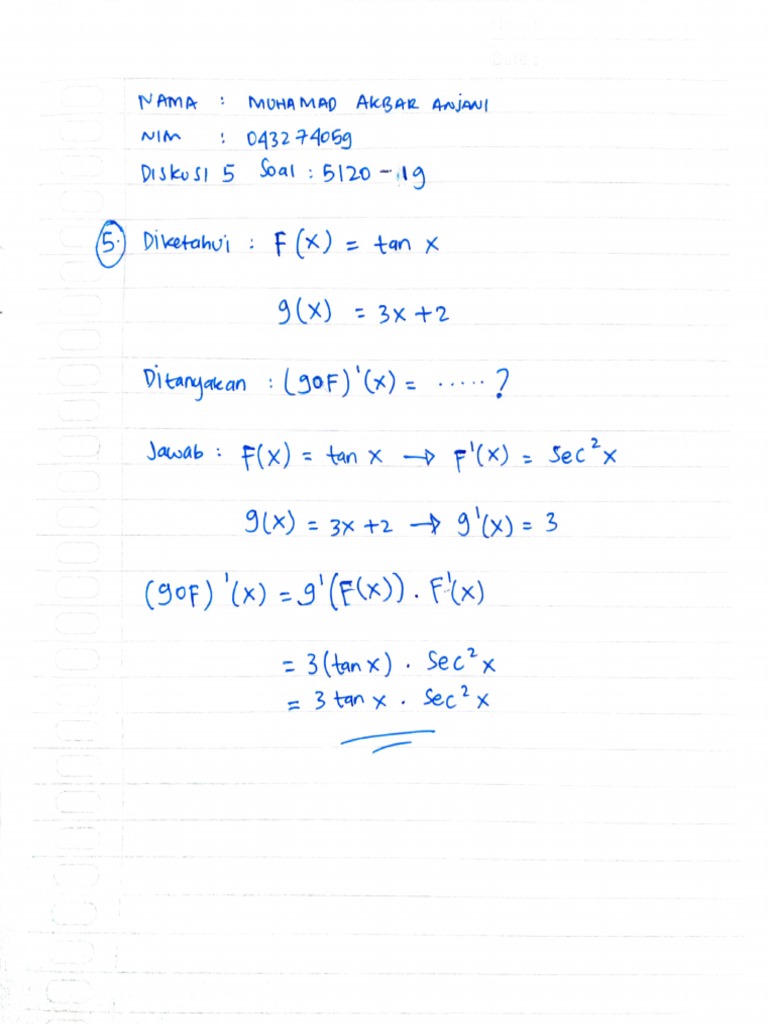 NAMA : MUHAMAD AKBAR ANJANI
NIM : 043274059
DISKUSI 5 Soal : 5120 - 19
5. Diketahui : F(x) = tan x
g(x) = 3x + 2
Ditanyakan : (goF)'(x) = ..... ?
Jawab : F(x) = tan x → F'(x) = Sec²x
g(x) = 3x + 2 → g'(x) = 3
(goF)'(x) = g'(F(x)) . F'(x)
= 3(tan x) . Sec²x
= 3 tan x . Sec²x